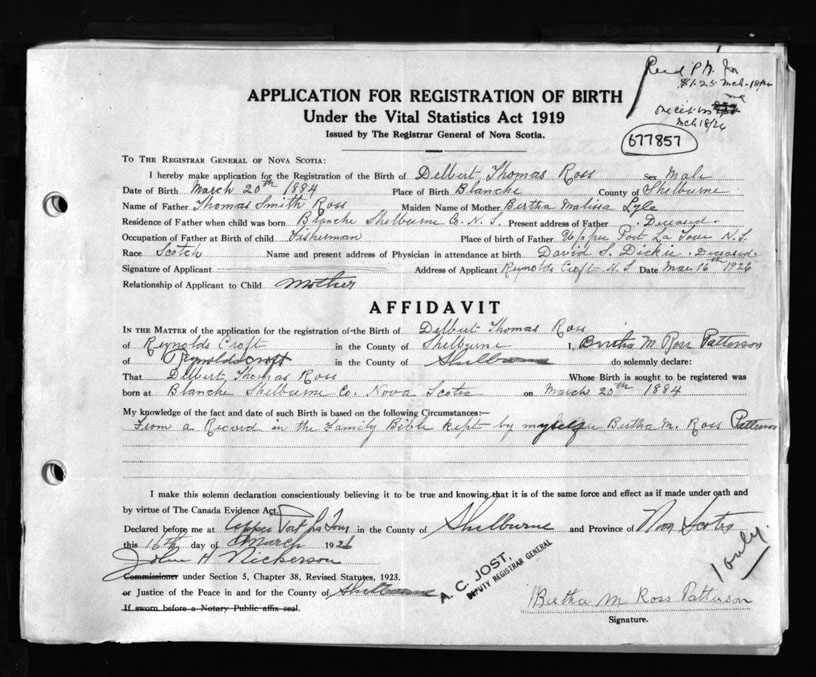 Rec'd P.N. for
$1.25 Mch. 18/26
Mch 18/26
677857
APPLICATION FOR REGISTRATION OF BIRTH
Under the Vital Statistics Act 1919
Issued by The Registrar General of Nova Scotia.
TO THE REGISTRAR GENERAL OF NOVA SCOTIA:
I hereby make application for the Registration of the Birth of Delbert Thomas Ross Sex Male
Date of Birth March 20th 1884 Place of Birth Blanche County of Shelburne
Name of Father Thomas Smith Ross Maiden Name of Mother Bertha Malissa Lyle
Residence of Father when child was born Blanche Shelburne Co. N.S. Present address of Father Deceased.
Occupation of Father at Birth of child Fisherman Place of birth of Father Upper Port La Tour N.S.
Race Scotch Name and present address of Physician in attendance at birth David S. Dickie. Deceased.
Signature of Applicant Address of Applicant Reynolds Croft N.S Date Mar 16th 1926
Relationship of Applicant to Child Mother
AFFIDAVIT
IN THE MATTER of the application for the registration of the Birth of Delbert Thomas Ross
of Reynolds Croft in the County of Shelburne I, Bertha M. Ross Patterson
of Reynolds Croft in the County of Shelburne do solemnly declare:
That Delbert Thomas Ross Whose Birth is sought to be registered was
born at Blanche Shelburne Co. Nova Scotia on March 20th 1884
My knowledge of the fact and date of such Birth is based on the following Circumstances:—
From a Record in the Family Bible kept by myself Bertha M. Ross Patterson
I make this solemn declaration conscientiously believing it to be true and knowing that it is of the same force and effect as if made under oath and
by virtue of The Canada Evidence Act.
Declared before me at Upper Port La Tour in the County of Shelburne and Province of Nova Scotia
this 16th day of March 1926
John H Nickerson
Commissioner under Section 5, Chapter 38, Revised Statutes, 1923.
or Justice of the Peace in and for the County of Shelburne
If sworn before a Notary Public affix seal.
A. C. JOST,
DEPUTY REGISTRAR GENERAL
1 only.
Bertha M Ross Patterson
Signature.